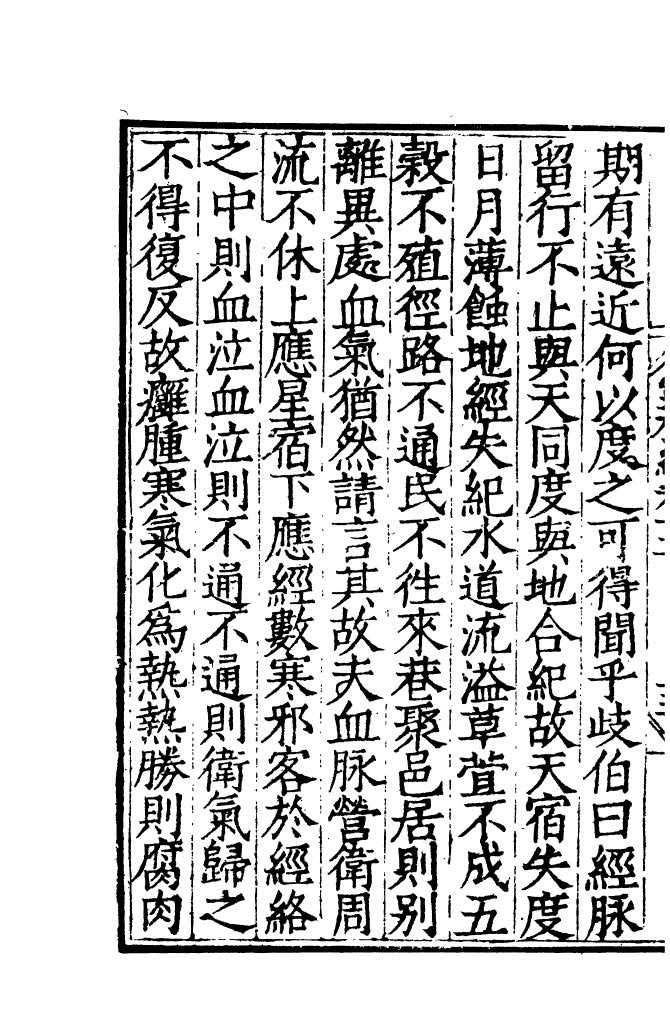 期有遠近何以度之可得聞乎歧伯曰經脉
留行不止與天同度與地合紀故天宿失度
日月薄蝕地經失紀水道流溢草萓不成五
穀不殖徑路不通民不徃來巷聚邑居則别
離異處血氣猶然請言其故夫血脉營衛周
流不休上應星宿下應經數寒邪客於經絡
之中則血泣血泣則不通不通則衛氣歸之
不得復反故癰腫寒氣化為熱熱勝則腐肉